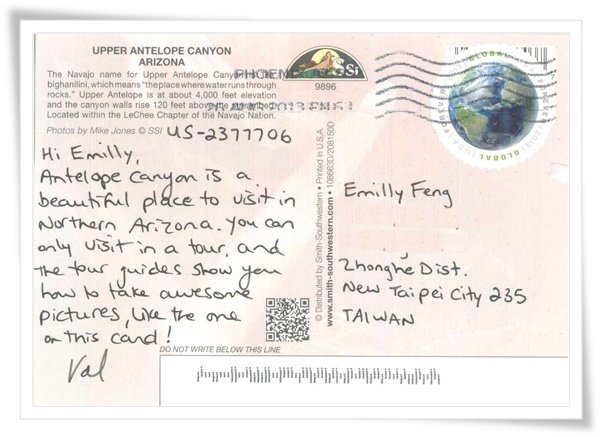 UPPER ANTELOPE CANYON
ARIZONA
The Navajo name for Upper Antelope Canyon
bighanilini, which means "the place where water runs through
rocks." Upper Antelope is at about 4,000 feet elevation
and the canyon walls rise 120 feet above
Located within the LeChee Chapter of the Navajo Nation.
Photos by Mike Jones © SSI
US-2377706
SSI
9896
PHOENIX
2013
GLOBAL
USA FOREVER
GLOBAL
Hi Emilly,
Antelope Canyon is a
beautiful place to visit in
Northern Arizona. You can
only visit in a tour, and
the tour guides show you
how to take awesome
pictures, like the one
on this card!
Val
© Distributed by Smith-Southwestern • Printed in U.S.A.
www.smith-southwestern.com • 108663D/208150D
Emilly Feng
Zhonghe Dist.
New Taipei City 235
TAIWAN
DO NOT WRITE BELOW THIS LINE